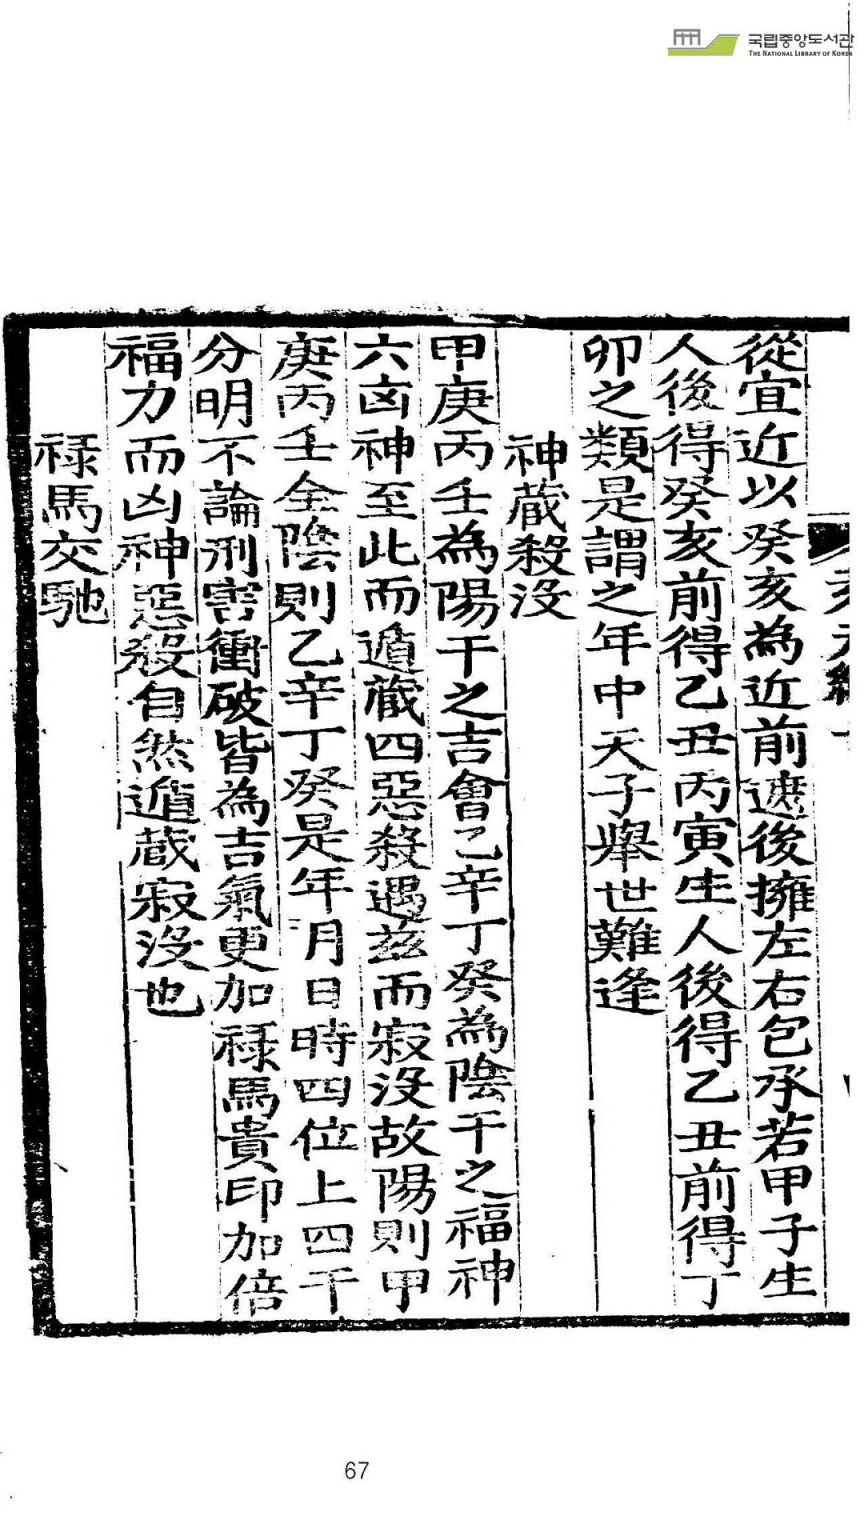 국립중앙도서관
THE NATIONAL LIBRARY OF KOREA
從宜近以癸亥為近前遮後擁左右包承若甲子生
人後得癸亥前得乙丑丙寅生人後得乙丑前得丁
卯之類是謂之年中天子舉世難逢
神蔵殺没
甲庚丙壬為陽干之吉會乙辛丁癸為陰干之福神
六凶神至此而遁蔵四惡殺遇茲而寂没故陽則甲
庚丙壬全陰則乙辛丁癸是年月日時四位上四干
分明不論刑害衝破皆為吉氣更加禄馬貴印加倍
福力而凶神惡殺自然遁蔵寂没也
禄馬交馳
67